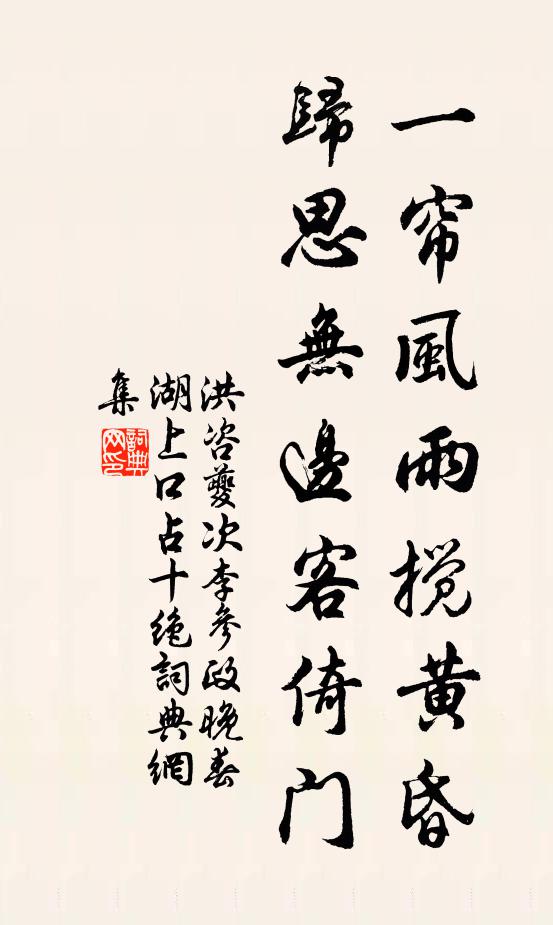 一帘風雨搅黄昏
歸思無邊客倚门
洪咨夔次李參政晚春
湖上口占十绝詞典網
集
詞典网印